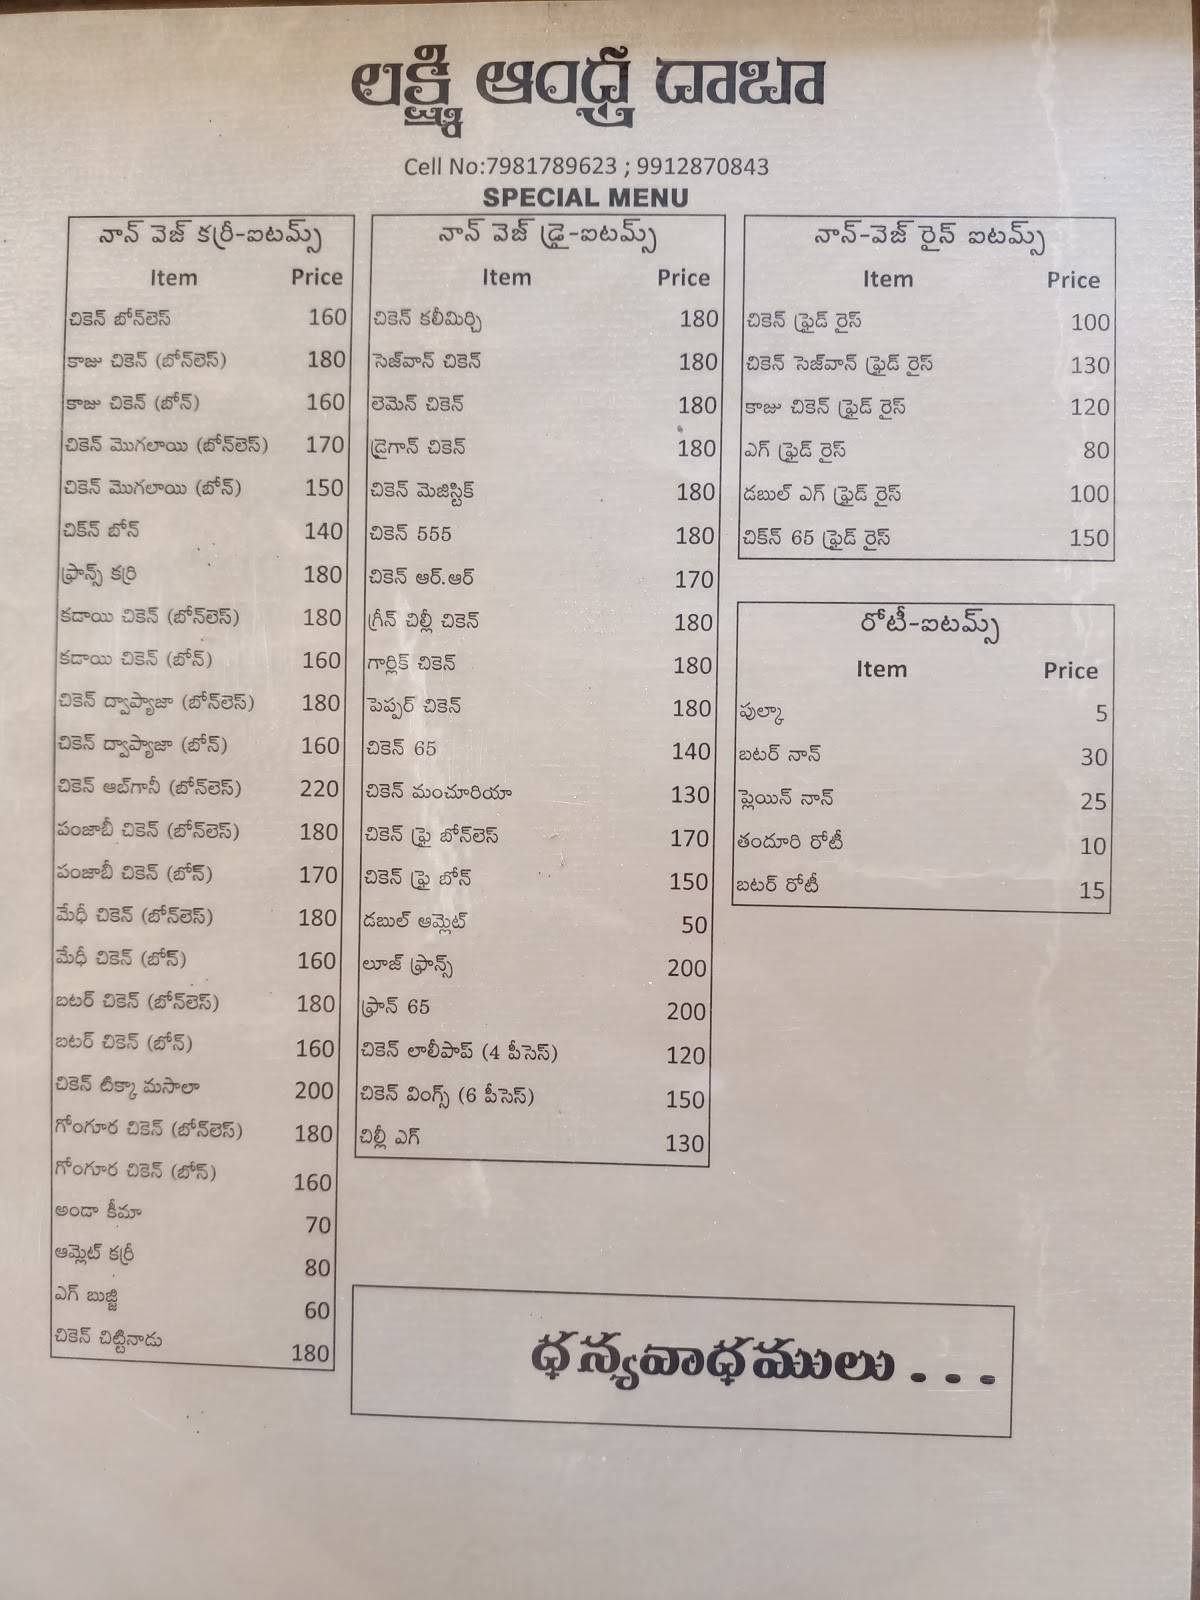 లక్ష్మి ఆంధ్ర దాబా
Cell No:7981789623 ; 9912870843
SPECIAL MENU
నాన్ వెజ్ కర్రీ-ఐటమ్స్
Item Price
చికెన్ బోన్‌లెస్ 160
కాజు చికెన్ (బోన్‌లెస్) 180
కాజు చికెన్ (బోన్) 160
చికెన్ మొగలాయి (బోన్‌లెస్) 170
చికెన్ మొగలాయి (బోన్) 150
చిక్‌న్ బోన్ 140
ఫ్రాన్స్ కర్రి 180
కడాయి చికెన్ (బోన్‌లెస్) 180
కడాయి చికెన్ (బోన్) 160
చికెన్ ద్వాప్యాజా (బోన్‌లెస్) 180
చికెన్ ద్వాప్యాజా (బోన్) 160
చికెన్ ఆబ్‌గానీ (బోన్‌లెస్) 220
పంజాబీ చికెన్ (బోన్‌లెస్) 180
పంజాబీ చికెన్ (బోన్) 170
మేధీ చికెన్ (బోన్‌లెస్) 180
మేధీ చికెన్ (బోన్) 160
బటర్ చికెన్ (బోన్‌లెస్) 180
బటర్ చికెన్ (బోన్) 160
చికెన్ టిక్కా మసాలా 200
గోంగూర చికెన్ (బోన్‌లెస్) 180
గోంగూర చికెన్ (బోన్) 160
అండా కీమా 70
ఆమ్లెట్ కర్రీ 80
ఎగ్ బుజ్జి 60
చికెన్ చిట్టినాడు 180
నాన్ వెజ్ డ్రై-ఐటమ్స్
Item Price
చికెన్ కలీమిర్చి 180
సెజ్‌వాన్ చికెన్ 180
లెమెన్ చికెన్ 180
డ్రైగాన్ చికెన్ 180
చికెన్ మెజిస్టిక్ 180
చికెన్ 555 180
చికెన్ ఆర్.ఆర్ 170
గ్రీన్ చిల్లీ చికెన్ 180
గార్లిక్ చికెన్ 180
పెప్పర్ చికెన్ 180
చికెన్ 65 140
చికెన్ మంచూరియా 130
చికెన్ ఫ్రై బోన్‌లెస్ 170
చికెన్ ఫ్రై బోన్ 150
డబుల్ ఆమ్లెట్ 50
లూజ్ ఫ్రాన్స్ 200
ఫ్రాన్ 65 200
చికెన్ లాలీపాప్ (4 పీసెస్) 120
చికెన్ వింగ్స్ (6 పీసెస్) 150
చిల్లీ ఎగ్ 130
నాన్-వెజ్ రైస్ ఐటమ్స్
Item Price
చికెన్ ఫ్రైడ్ రైస్ 100
చికెన్ సెజ్‌వాన్ ఫ్రైడ్ రైస్ 130
కాజు చికెన్ ఫ్రైడ్ రైస్ 120
ఎగ్ ఫ్రైడ్ రైస్ 80
డబుల్ ఎగ్ ఫ్రైడ్ రైస్ 100
చిక్‌న్ 65 ఫ్రైడ్ రైస్ 150
రోటీ-ఐటమ్స్
Item Price
పుల్కా 5
బటర్ నాన్ 30
ప్లెయిన్ నాన్ 25
తందూరి రోటీ 10
బటర్ రోటీ 15
ధన్యవాధములు...